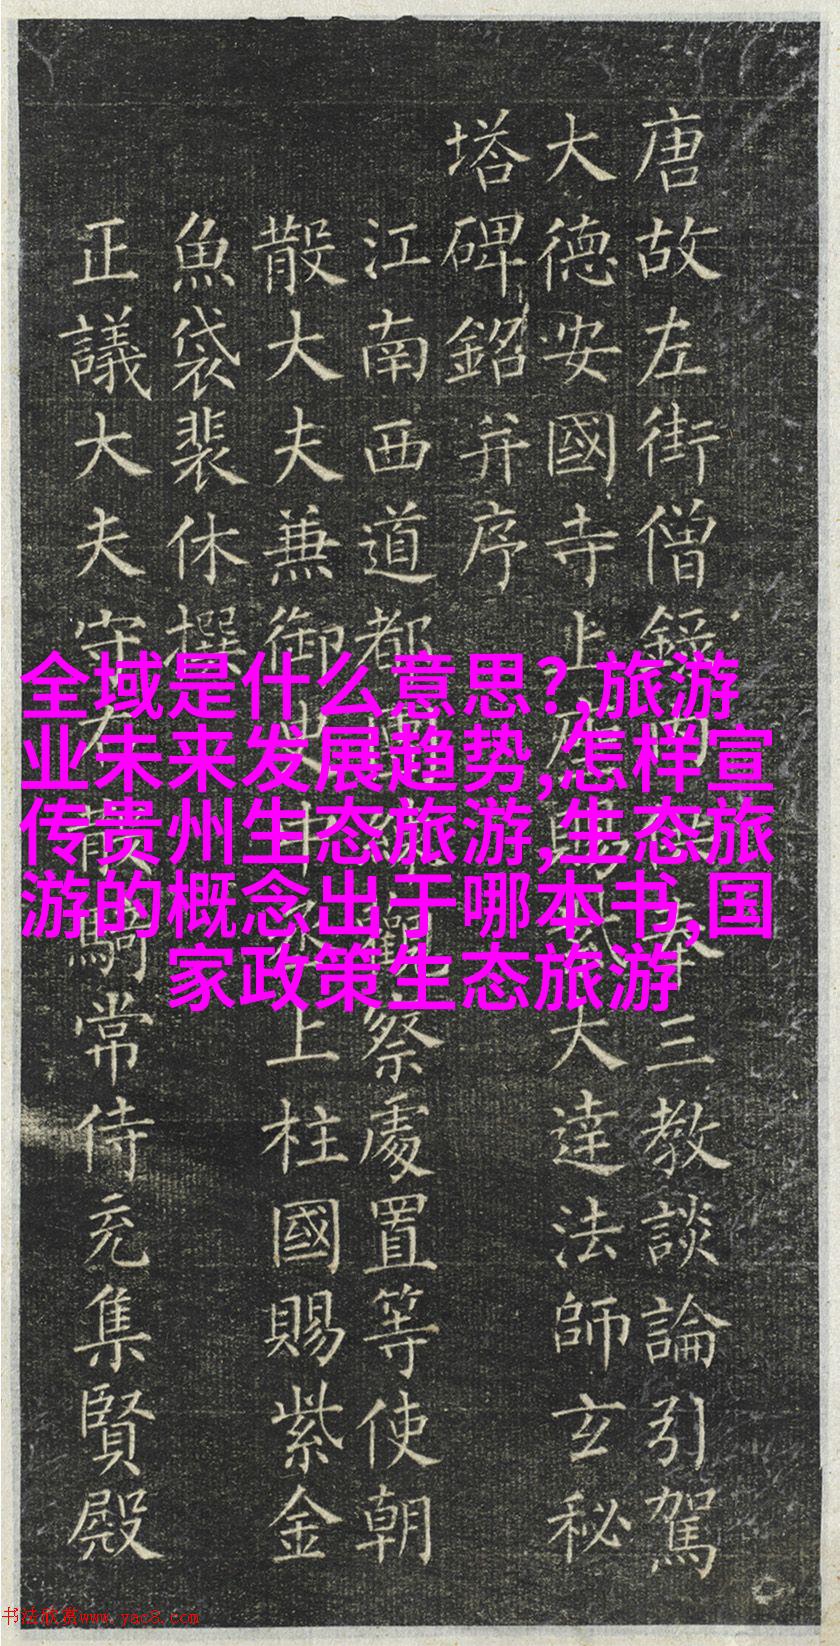 唐故左街僧三教談論引駕
大德安國寺上大達法師玄秘
塔碑銘并序
江南西道都觀察處置等使朝
散大夫兼御中上柱國賜紫金
魚袋裴休撰
正議大夫守散騎常侍充集賢殿
全域是什么意思?,旅游
业未来发展趋势,怎样宣
传贵州生态旅游,生态旅
游的概念出于哪本书,国
家政策生态旅游
书法欣赏www.yac8.com